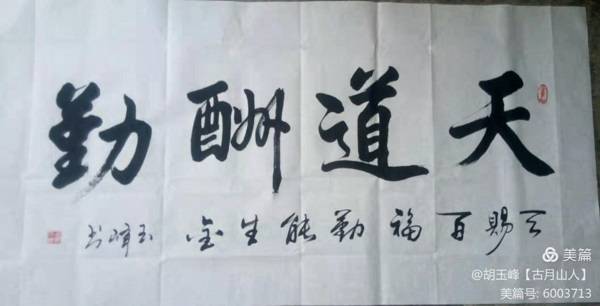 天道酬勤
天赐百福勤能生金 玉峰书
美篇
@胡玉峰【古月山人】
美篇号: 6003713